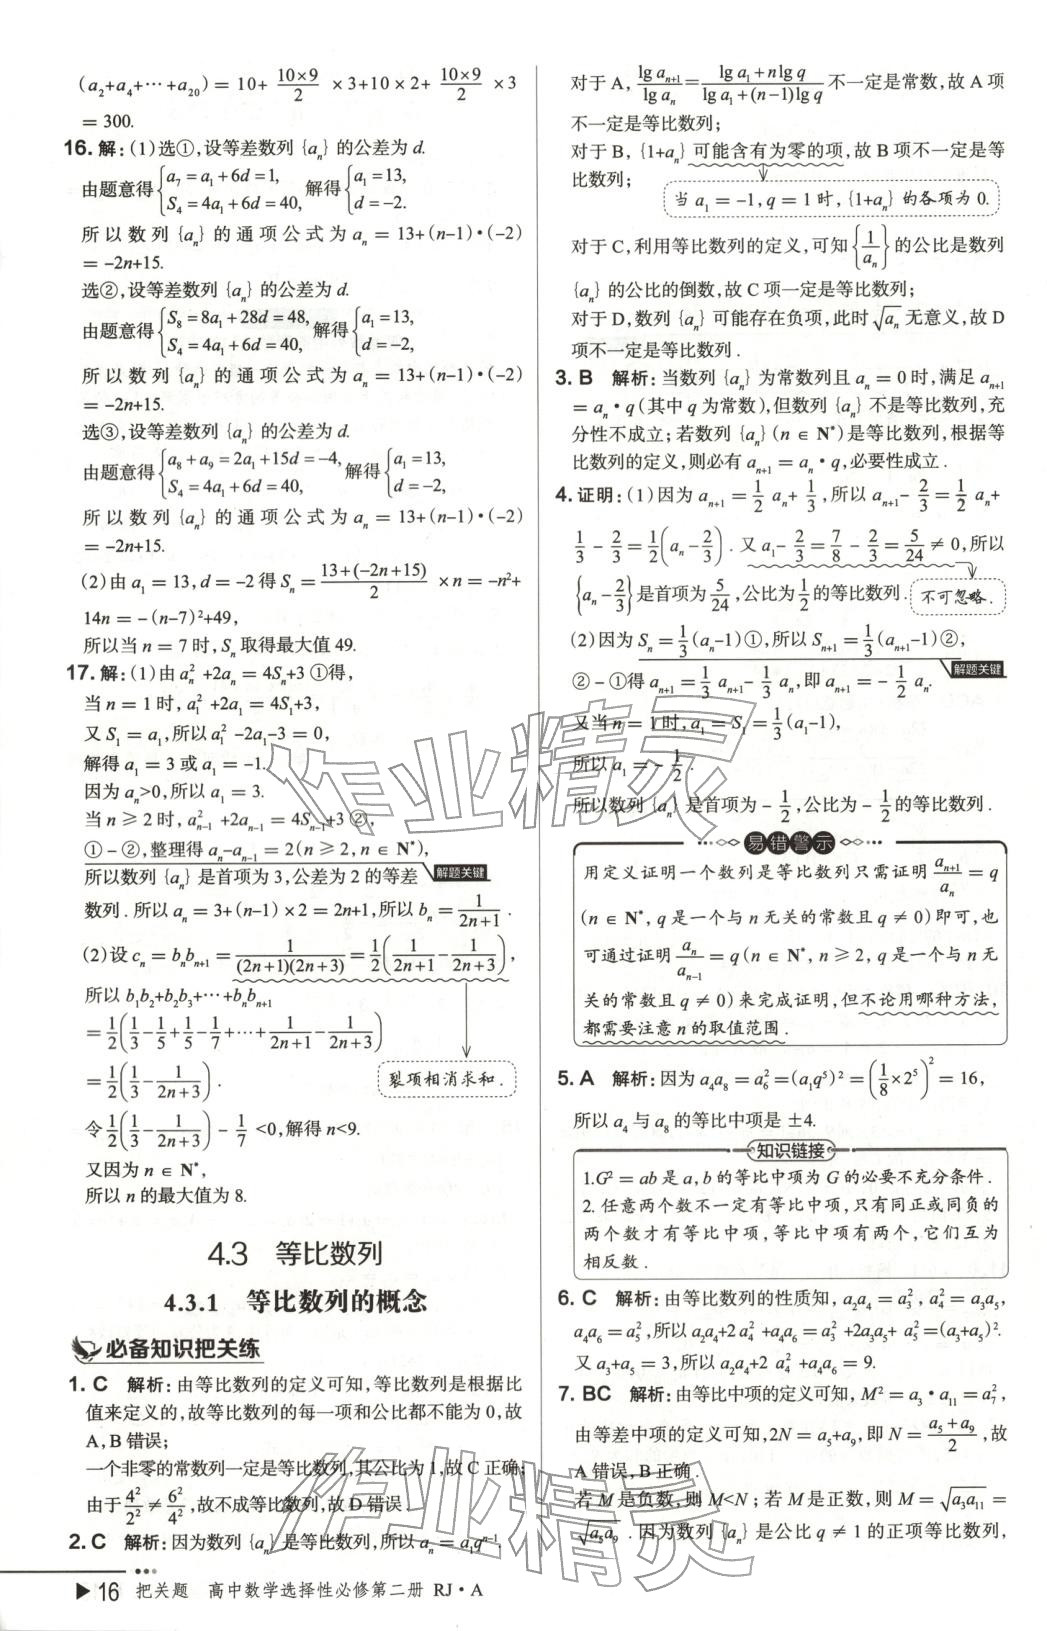 (a₂+a₄+⋯+a₂₀) = 10+ (10×9)/2 ×3+10×2+ (10×9)/2 ×3
= 300.
16.解:(1)选①,设等差数列{aₙ}的公差为d.
由题意得{a₇=a₁+6d=1, S₄=4a₁+6d=40, 解得{a₁=13, d=-2.
所以数列{aₙ}的通项公式为aₙ=13+(n-1)·(-2)
=-2n+15.
选②,设等差数列{aₙ}的公差为d.
由题意得{S₈=8a₁+28d=48, S₄=4a₁+6d=40, 解得{a₁=13, d=-2,
所以数列{aₙ}的通项公式为aₙ=13+(n-1)·(-2)
=-2n+15.
选③,设等差数列{aₙ}的公差为d.
由题意得{a₈+a₉=2a₁+15d=-4, S₄=4a₁+6d=40, 解得{a₁=13, d=-2,
所以数列{aₙ}的通项公式为aₙ=13+(n-1)·(-2)
=-2n+15.
(2)由a₁=13,d=-2得Sₙ= (13+(-2n+15))/2 ×n=-n²+
14n=-(n-7)²+49,
所以当n=7时,Sₙ取得最大值49.
17.解:(1)由aₙ²+2aₙ=4Sₙ+3①得,
当n=1时,a₁²+2a₁=4S₁+3,
又S₁=a₁,所以a₁²-2a₁-3=0,
解得a₁=3或a₁=-1.
因为aₙ>0,所以a₁=3.
当n≥2时,aₙ₋₁²+2aₙ₋₁=4Sₙ₋₁+3②,
①-②,整理得aₙ-aₙ₋₁=2(n≥2,n∈N*),
所以数列{aₙ}是首项为3,公差为2的等差 解题关键
数列.所以aₙ=3+(n-1)×2=2n+1,所以bₙ= 1/(2n+1).
(2)设cₙ=bₙbₙ₊₁= 1/((2n+1)(2n+3)) = 1/2(1/(2n+1) - 1/(2n+3)),
所以b₁b₂+b₂b₃+⋯+bₙbₙ₊₁
= 1/2(1/3-1/5+1/5-1/7+⋯+1/(2n+1)-1/(2n+3))
= 1/2(1/3-1/(2n+3)). 裂项相消求和.
令1/2(1/3-1/(2n+3))-1/7<0,解得n<9.
又因为n∈N*,
所以n的最大值为8.
4.3 等比数列
4.3.1 等比数列的概念
必备知识把关练
1. C 解析:由等比数列的定义可知,等比数列是根据比
值来定义的,故等比数列的每一项和公比都不能为0,故
A,B错误;
一个非零的常数列一定是等比数列,其公比为1,故C正确;
由于4²/2²≠6²/4²,故不成等比数列,故D错误.
2. C 解析:因为数列{aₙ}是等比数列,所以aₙ=a₁qⁿ⁻¹.
▶16 把关题 高中数学选择性必修第二册 RJ·A
对于A, lg aₙ₊₁/lg aₙ = (lg a₁+nlg q)/(lg a₁+(n-1)lg q) 不一定是常数,故A项
不一定是等比数列;
对于B,{1+aₙ}可能含有为零的项,故B项不一定是等
比数列; 当a₁=-1,q=1时,{1+aₙ}的各项为0.
对于C,利用等比数列的定义,可知{1/aₙ}的公比是数列
{aₙ}的公比的倒数,故C项一定是等比数列;
对于D,数列{aₙ}可能存在负项,此时√aₙ无意义,故D
项不一定是等比数列.
3. B 解析:当数列{aₙ}为常数列且aₙ=0时,满足aₙ₊₁
=aₙ·q(其中q为常数),但数列{aₙ}不是等比数列,充
分性不成立;若数列{aₙ}(n∈N*)是等比数列,根据等
比数列的定义,则必有aₙ₊₁=aₙ·q,必要性成立.
4.证明:(1)因为aₙ₊₁=1/2 aₙ+1/3,所以aₙ₊₁-2/3=1/2 aₙ+
1/3-2/3=1/2(aₙ-2/3).又a₁-2/3=7/8-2/3=5/24≠0,所以
{aₙ-2/3}是首项为5/24,公比为1/2的等比数列. 不可忽略.
(2)因为Sₙ=1/3(aₙ-1)①,所以Sₙ₊₁=1/3(aₙ₊₁-1)②,
②-①得aₙ₊₁=1/3 aₙ₊₁-1/3 aₙ,即aₙ₊₁=-1/2 aₙ. 解题关键
又当n=1时,a₁=S₁=1/3(a₁-1),
所以a₁=-1/2.
所以数列{aₙ}是首项为-1/2,公比为-1/2的等比数列.
易错警示
用定义证明一个数列是等比数列只需证明aₙ₊₁/aₙ=q
(n∈N*,q是一个与n无关的常数且q≠0)即可,也
可通过证明aₙ/aₙ₋₁=q(n∈N*,n≥2,q是一个与n无
关的常数且q≠0)来完成证明,但不论用哪种方法,
都需要注意n的取值范围.
5. A 解析:因为a₄a₈=a₆²=(a₁q⁵)²=(1/8×2⁵)²=16,
所以a₄与a₈的等比中项是±4.
知识链接
1.G²=ab是a,b的等比中项为G的必要不充分条件.
2.任意两个数不一定有等比中项,只有同正或同负的
两个数才有等比中项,等比中项有两个,它们互为
相反数.
6. C 解析:由等比数列的性质知,a₂a₄=a₃²,a₄²=a₃a₅,
a₄a₆=a₅²,所以a₂a₄+2a₄²+a₄a₆=a₃²+2a₃a₅+a₅²=(a₃+a₅)².
又a₃+a₅=3,所以a₂a₄+2a₄²+a₄a₆=9.
7. BC 解析:由等比中项的定义可知,M²=a₃·a₁₁=a₇²,
由等差中项的定义可知,2N=a₅+a₉,即N=(a₅+a₉)/2,故
A错误,B正确.
若M是负数,则M<N;若M是正数,则M=√(a₃a₁₁)=
√(a₅a₉).因为数列{aₙ}是公比q≠1的正项等比数列,
作业精灵
作业精灵